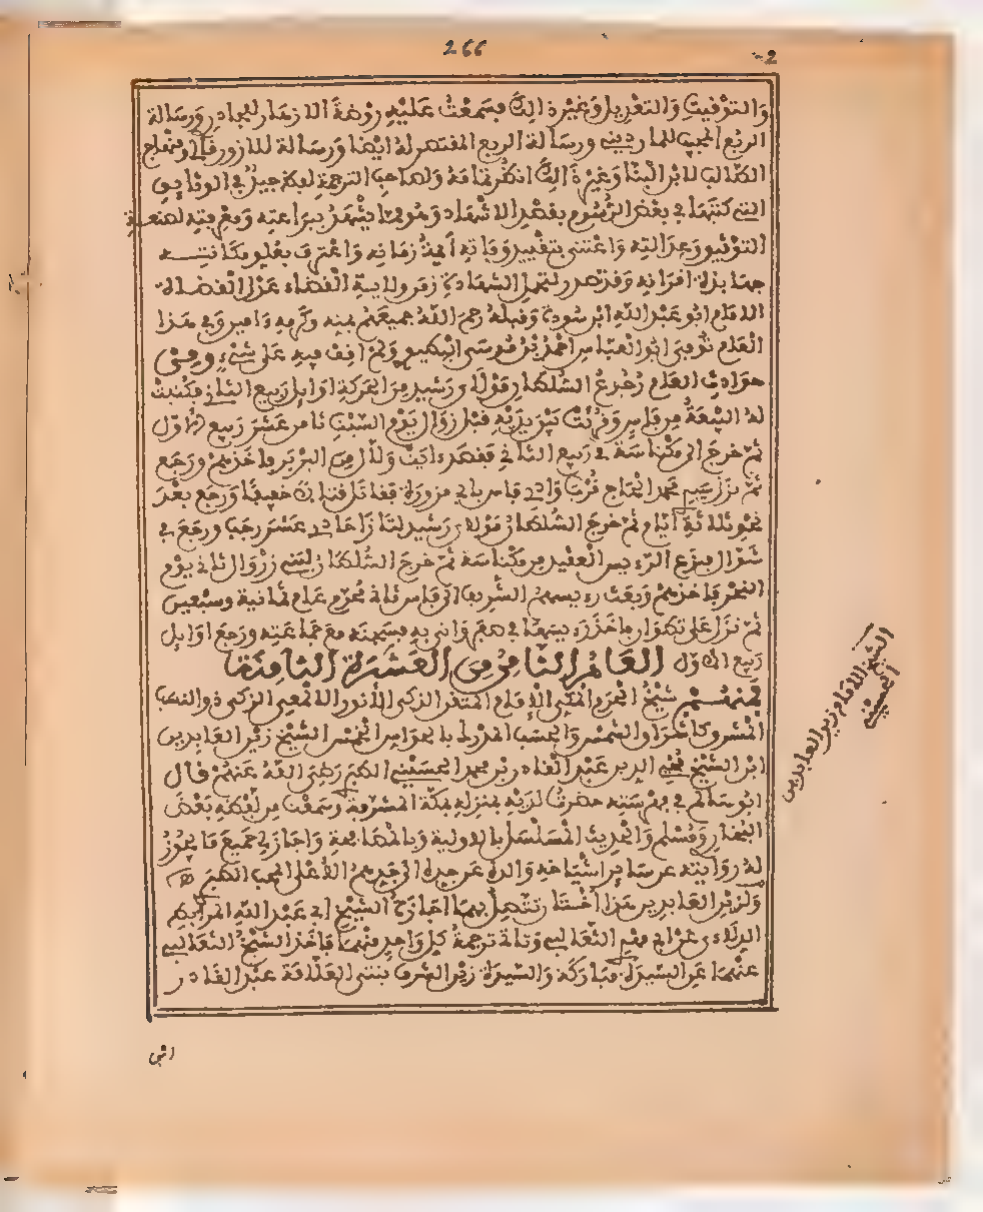 266
2
والتوفيت والتعديل وغير ذلك فسمعت عليه روضة الازهار للجادري ورسالة
الربع المجيب للمارديني ورسالة الربع المقنصر له ايضا ورسالة للزورفالي ومنهاج
الطالب لابن البنا وغير ذلك انظر تمامه ولصاحب الترجمة في الوثايق
التي كتبها في بعض الرسوم بعض الاشهاد وهو مما يشهر ببراعته ومعرفته لصنعة
التوثيق وعدالته واعتنى بتقييد وفاته أيمة زمانه واعترف بعلو مكانته
جهابذة افرانه وفد تصدر لتحمل الشهادة زمن ولاية الفضاء عند الفضاة
الامام ابو عبد الله ابن سودة وفبله رحم الله جميعهم بمنه وكرمه ءامين وفي هذا
العام توفي ابو العباس احمد بن موسى ولم افف فيه على شيء ومن
حوادث العام خروج السلطان مولاي رشيد من الحركة اوايل ربيع الثاني فكتبت
له البيعة من فاس وفرئت بين يديه فبل زوال يوم السبت ثامن عشر ربيع الاول
ثم خرج الى مكناسة في ربيع الثاني فقصد ءايت ولال من البربر فاخذهم ورجع
ثم نزل محمد الحاج فرب وادي فاس بابي مزورة فقاتل فتالا خفيفا ورجع بعد
نحو ثلاثة أيام ثم خرج السلطان مولاي رشيد لتازا حادي عشر رجب ورجع في
شوال الرءيس من مكناسة ثم خرج السلطان لبني زروال ثاني يوم
النحر فاخذهم وبعث رءيسهم الشريف الى فاس ثاني محرم عام ثمانية وسبعين
ثم نزل على تطوان فاخذ رءيسها في صفر واتي به فسجنه مع جماعته ورجع اوايل
ربيع الاول العام الثامن من العشرة الثامنة
فمنهم شيخ الحرم المكي الامام المتفنن الزكي الانور اللوذعي الزكي ذو النسب
المشرف كاشراق الشمس والحسب المدرك بالحواس الخمس الشيخ زين العابدين
ابن الشيخ محيي الدين عبد القادر بن محمد الحسيني الطبري رضي الله عنهم فال
ابو سالم في فهرسته حضرت لديه بمنزله بمكة المشرفة وسمعت من لفظه بعض
البخاري ومسلم والحديث المسلسل بالاولية وبالمصافحة واجازني جميع ما يجوز
له روايته عن ساير اشياخه والده عن جده الى جدهم الاعلى المحب الطبري اﻫ
ولزين العابدين هذا أختان تتصل بهما اجازة الشيخ ابي عبد الله المرابط
الدلاءي عن ابي مهدي الثعالبي وتاتي ترجمة كل واحد منهما فاخذ الشيخ الثعالبي
عنهما عن السيدة مباركة والسيدة زين الشرف بنتي العلامة عبد القادر
ابن
الشيخ الامام زين العابدين
الحسيني